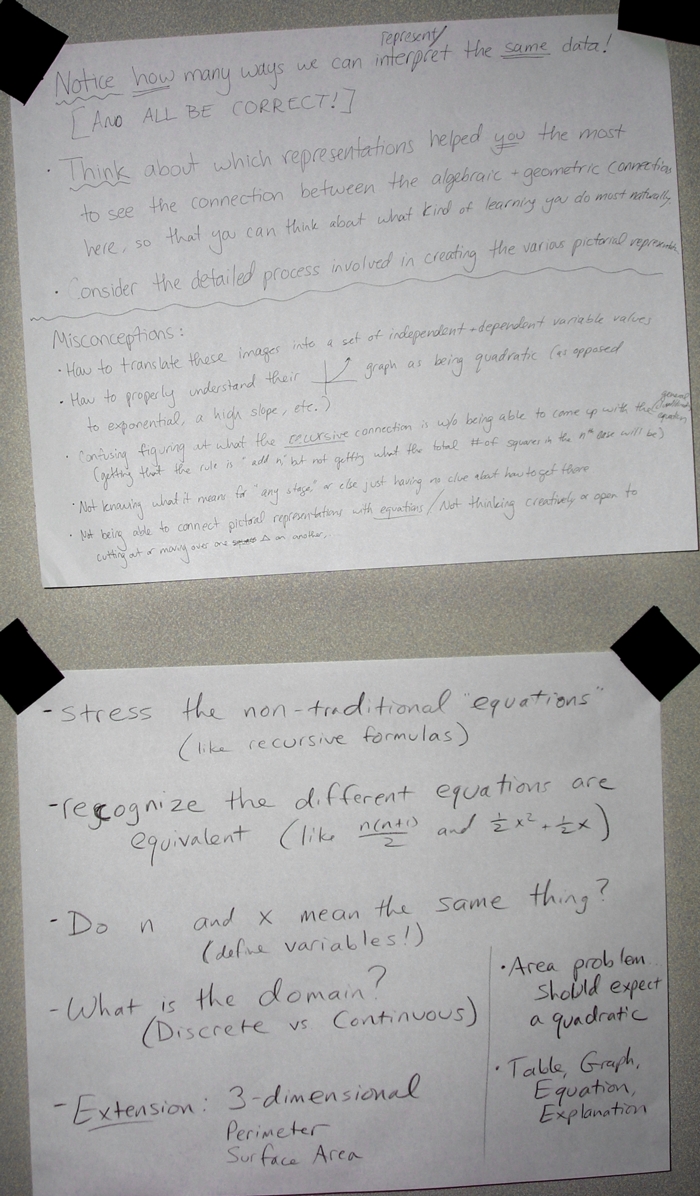 represent/
Notice how many ways we can interpret the same data!
[AND ALL BE CORRECT!]
· Think about which representations helped you the most
to see the connection between the algebraic + geometric connection
here, so that you can think about what kind of learning you do most naturally.
· Consider the detailed process involved in creating the various pictorial
Misconceptions:
· How to translate these images into a set of independent + dependent variable values
· How to properly understand their graph as being quadratic (as opposed
to exponential, a high slope, etc.)
· Confusing figuring out what the recursive connection is w/o being able to come up with the general equation
(getting that the rule is "add n" but not getting what the total # of squares in the nth case will be)
· Not knowing what it means for "any stage," or else just having no clue about how to get there
· Not being able to connect pictoral representations with equations / Not thinking creatively or open to
cutting out or moving over one Δ on another...
- stress the non-traditional "equations"
(like recursive formulas)
- recognize the different equations are
equivalent (like n(n+1)/2 and 1/2 x² + 1/2 x)
- Do n and x mean the same thing?
(define variables!)
- What is the domain?
(Discrete vs Continuous)
- Extension: 3-dimensional
Perimeter
Surface Area
· Area problem
should expect
a quadratic
· Table, Graph,
Equation,
Explanation